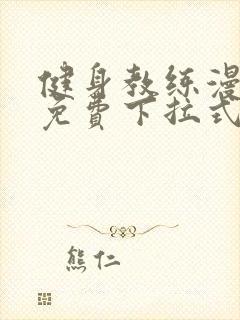 健身教练漫
免費下拉式
熊仁